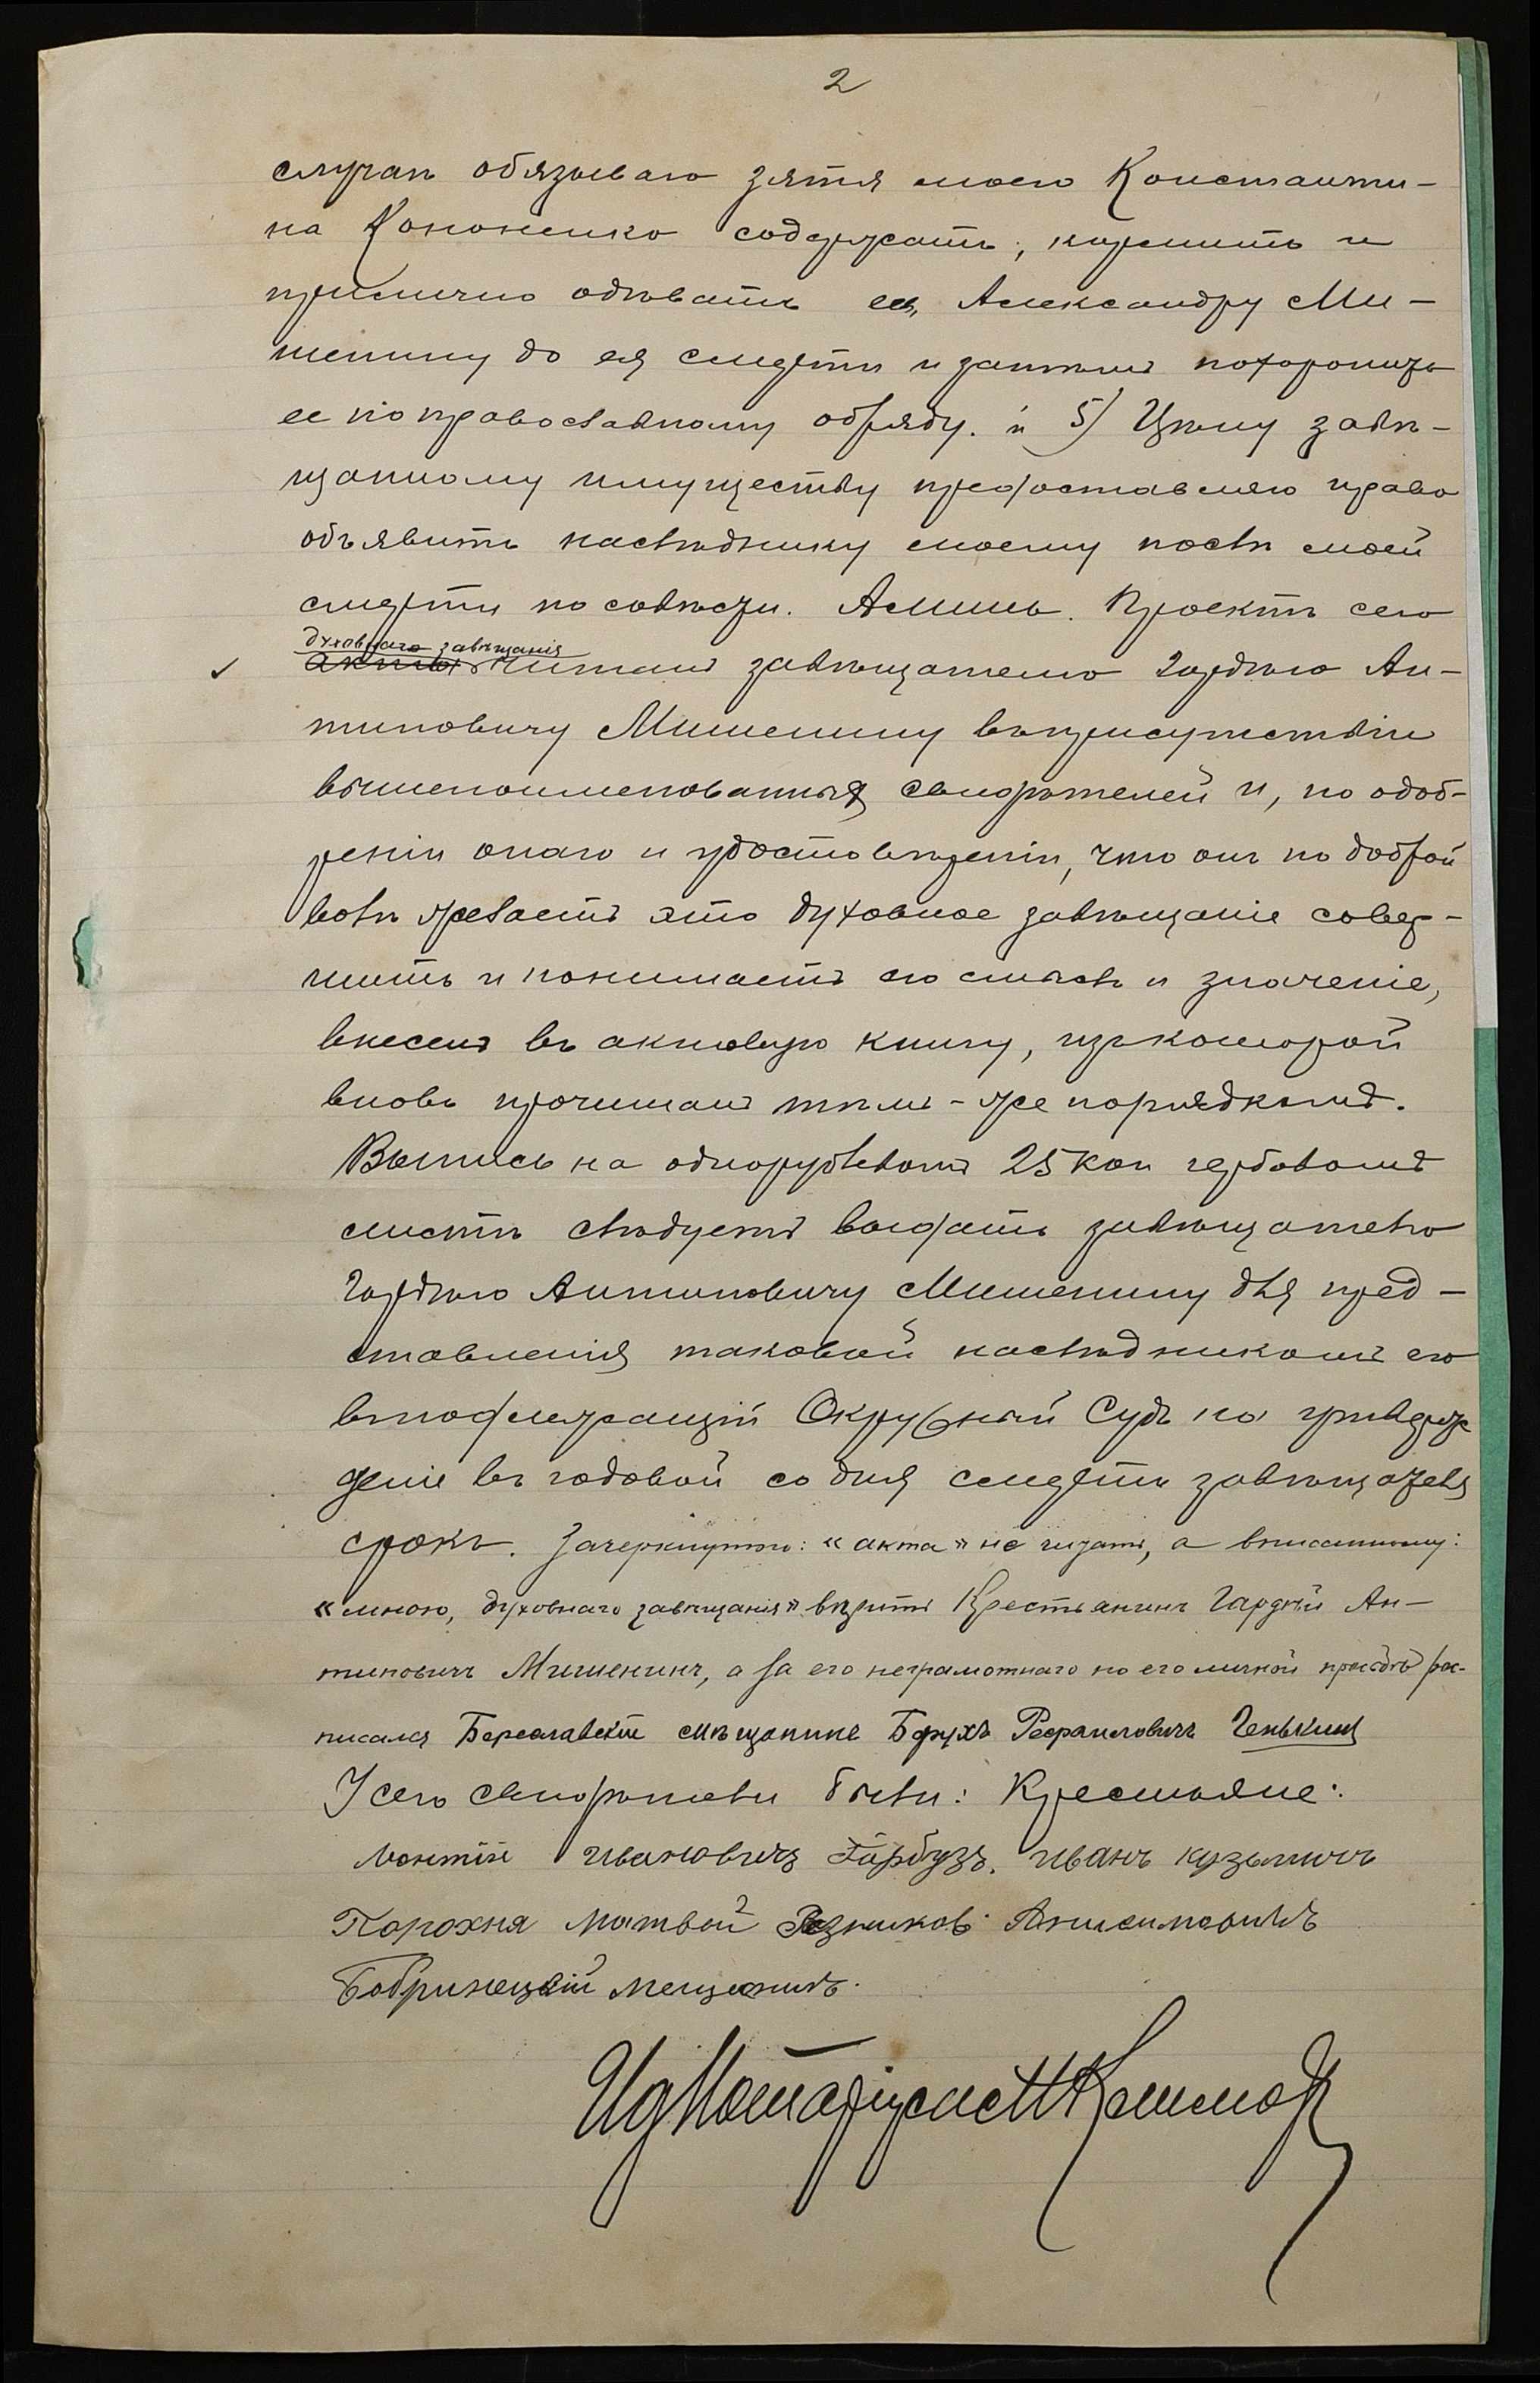 2
случаѣ обязываю зятя моего Константи-
на Кононенко содержать, кормить и
прилично одѣвать ее, Александру Ми-
шенину до ея смерти и затѣмъ похоронить
ее по православному обряду. и 5) Цѣну завѣ-
щанному имуществу предоставляю право
объявить наслѣднику моему послѣ моей
смерти по совѣсти. Аминь. Проектъ сего
духовнаго завѣщанія
акта читанъ завѣщателю Гордѣю Ан-
типовичу Мишенину въ присутствіи
вышепоименованныхъ свидѣтелей и, по одоб-
реніи онаго и удостовѣреніи, что онъ по доброй
волѣ желаетъ это духовное завѣщаніе совер-
шить и понимаетъ его смыслъ и значеніе,
внесенъ въ актовую книгу, изъ которой
вновь прочитанъ тѣмъ-же порядкомъ.
Выпись на однорублевомъ 25 коп гербовомъ
листѣ слѣдуетъ выдать завѣщателю
Гордѣю Антиповичу Мишенину для пред-
ставленія таковой наслѣдникомъ его
въ подлежащій Окружный Судъ на утверж
деніе въ годовой со дня смерти завѣщателя
срокъ. Зачеркнутое: "акта" не читать, а вписанному:
"мною, духовнаго завѣщанія" вѣрить Крестьянинъ Гордѣй Ан-
типовичъ Мишенинъ, а за его неграмотнаго по его личной просьбѣ рос-
писался Бериславскій мѣщанинъ Борухъ Рефаиловичъ Генькинъ
У сего свидѣтели были: Крестьяне:
Леонтій Ивановичъ Гарбузъ. Иванъ Кузьмичъ
Порохня Матвей Резников Анисимовичъ
Бобринецкій мещанинъ.
Ид Нотаріуса